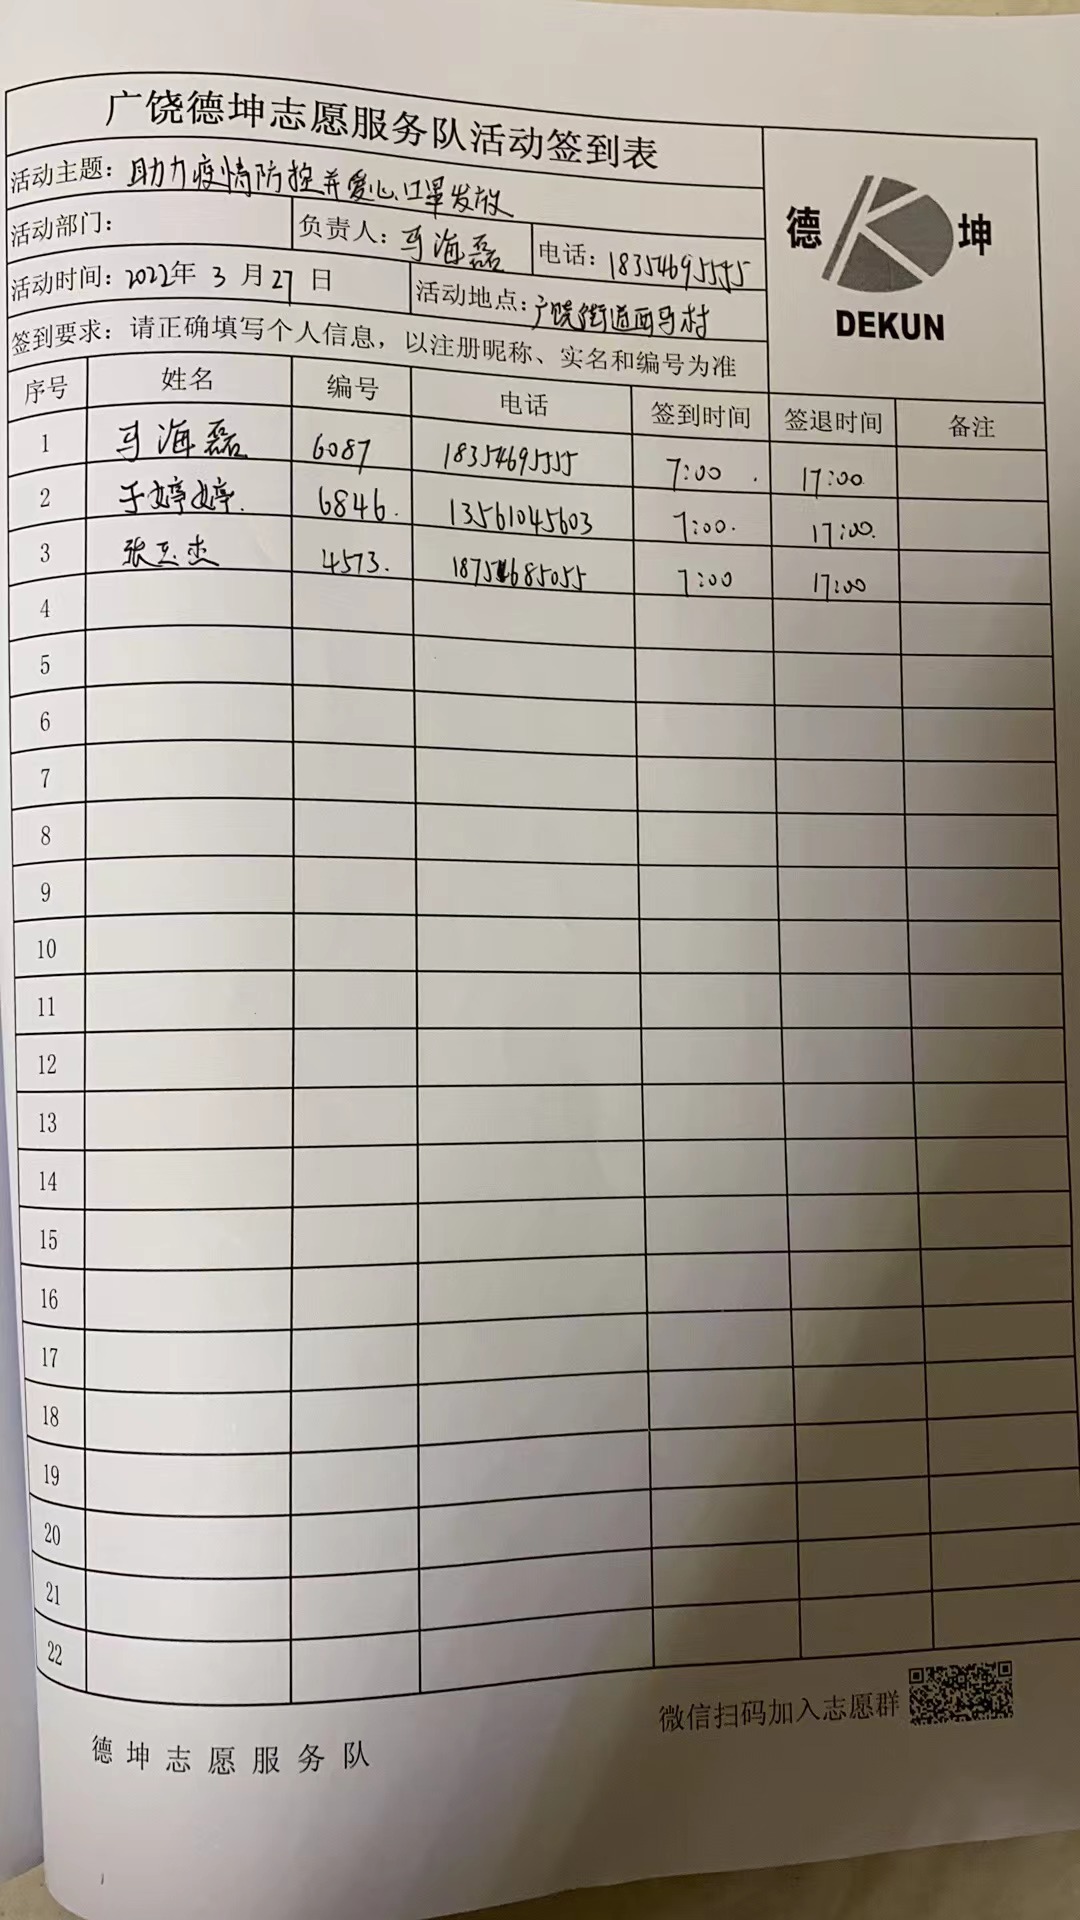 广饶德坤志愿服务队活动签到表
活动主题：助力疫情防控并爱心口罩发放
德 坤
DEKUN
活动部门： 负责人：马海磊 电话：18354695555
活动时间：2022年 3 月 27 日 活动地点：广饶街道西马村
签到要求：请正确填写个人信息，以注册昵称、实名和编号为准
序号 姓名 编号 电话 签到时间 签退时间 备注
1 马海磊 6087 18354695555 7:00 17:00
2 于婷婷 6846 13561045603 7:00 17:00
3 张玉杰 4573 18754685055 7:00 17:00
4
5
6
7
8
9
10
11
12
13
14
15
16
17
18
19
20
21
22
微信扫码加入志愿群
德坤志愿服务队